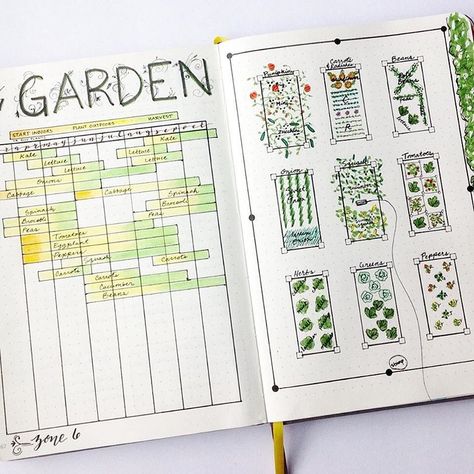 GARDEN
START INDOORS PLANT OUTDOORS HARVEST
Kale Kale
Lettuce Lettuce
Lettuce Lettuce
Onions
Cabbage Cabbage Cabbage
Spinach Spinach
Brocoli Brocoli
Peas Peas
Tomatoes
Eggplant
Peppers
Squash
Carrots Carrots
Carrots
Cucumber
Beans
zone 6
Pumpkins
Carrots & Radishes
Beans
C
R
Onion
Squash
Tomatoes
Herbs
Greens
Peppers